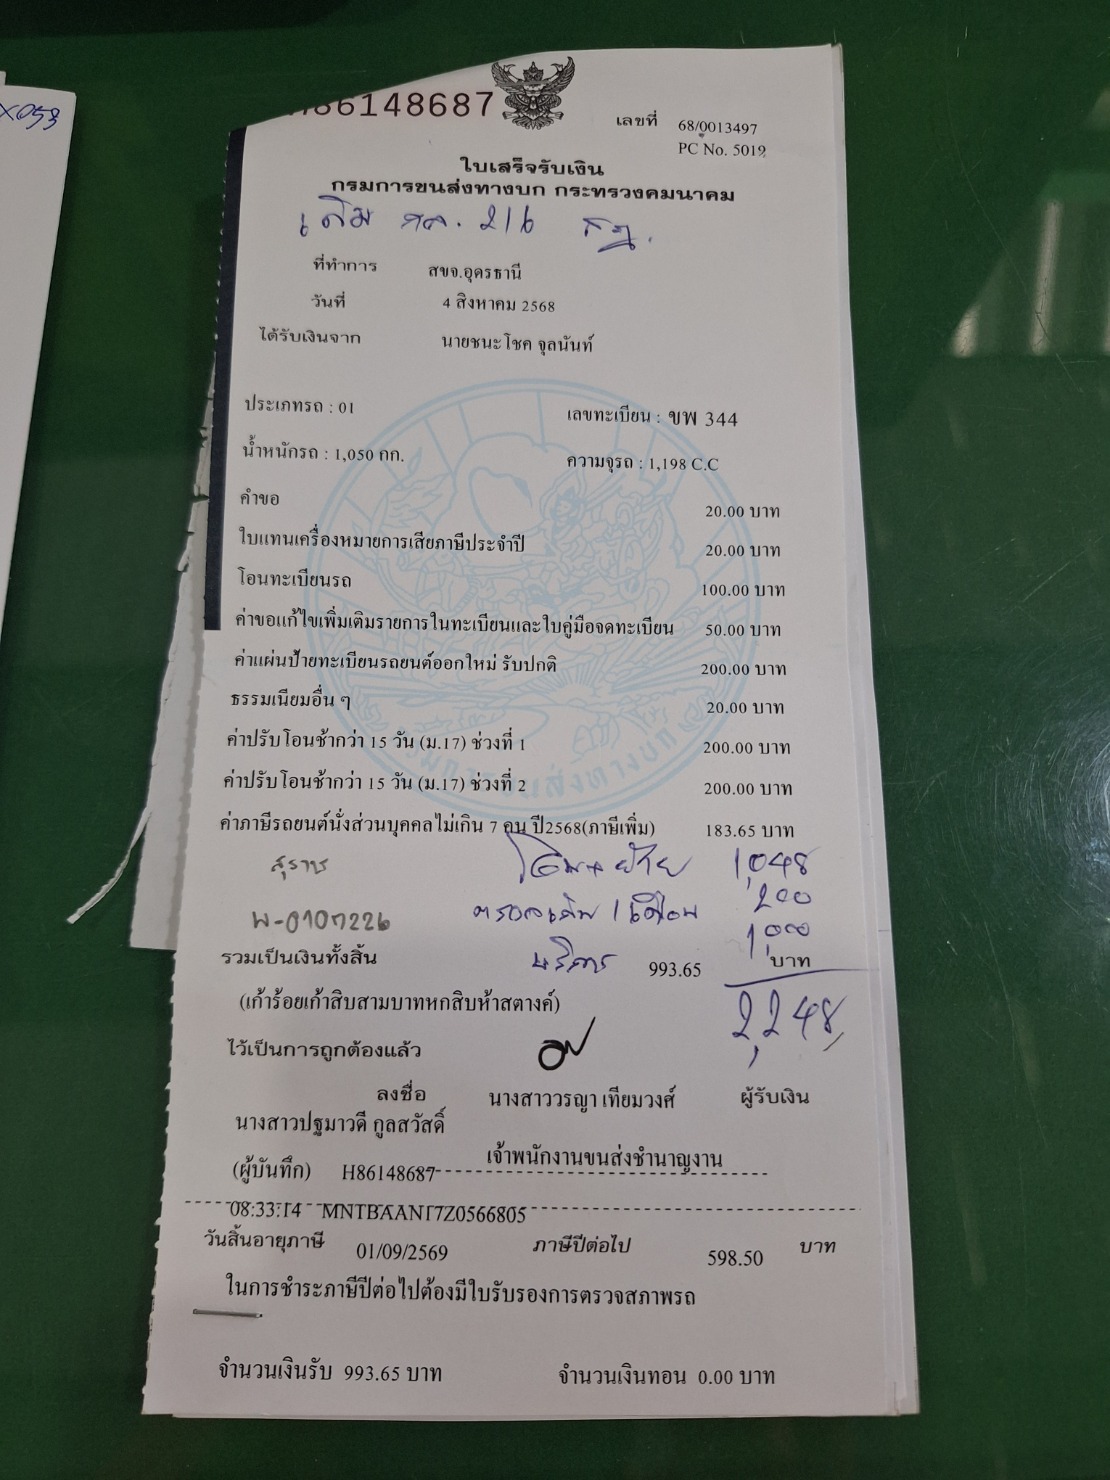 86148687
เลขที่ 68/0013497
PC No. 5019
ใบเสร็จรับเงิน
กรมการขนส่งทางบก กระทรวงคมนาคม
เดิม 216
ที่ทำการ สขจ.อุดรธานี
วันที่ 4 สิงหาคม 2568
ได้รับเงินจาก นายชนะโชค จุลนันท์
ประเภทรถ : 01 เลขทะเบียน : ขพ 344
น้ำหนักรถ : 1,050 กก. ความจุรถ : 1,198 C.C
คำขอ 20.00 บาท
ใบแทนเครื่องหมายการเสียภาษีประจำปี 20.00 บาท
โอนทะเบียนรถ 100.00 บาท
ค่าขอแก้ไขเพิ่มเติมรายการในทะเบียนและใบคู่มือจดทะเบียน 50.00 บาท
ค่าแผ่นป้ายทะเบียนรถยนต์ออกใหม่ รับปกติ 200.00 บาท
ธรรมเนียมอื่น ๆ 20.00 บาท
ค่าปรับโอนช้ากว่า 15 วัน (ม.17) ช่วงที่ 1 200.00 บาท
ค่าปรับโอนช้ากว่า 15 วัน (ม.17) ช่วงที่ 2 200.00 บาท
ค่าภาษีรถยนต์นั่งส่วนบุคคลไม่เกิน 7 คน ปี2568(ภาษีเพิ่ม) 183.65 บาท
ย้าย 1,048
1 เดือน 200
บริการ 1,000
รวมเป็นเงินทั้งสิ้น 993.65 บาท
(เก้าร้อยเก้าสิบสามบาทหกสิบห้าสตางค์) 2,248
ไว้เป็นการถูกต้องแล้ว
ลงชื่อ นางสาววรญา เทียมวงศ์ ผู้รับเงิน
นางสาวปฐมาวดี กูลสวัสดิ์
เจ้าพนักงานขนส่งชำนาญงาน
(ผู้บันทึก) H86148687
08:33:14 MNTBAAN17Z0566805
วันสิ้นอายุภาษี 01/09/2569 ภาษีปีต่อไป 598.50 บาท
ในการชำระภาษีปีต่อไปต้องมีใบรับรองการตรวจสภาพรถ
จำนวนเงินรับ 993.65 บาท จำนวนเงินทอน 0.00 บาท